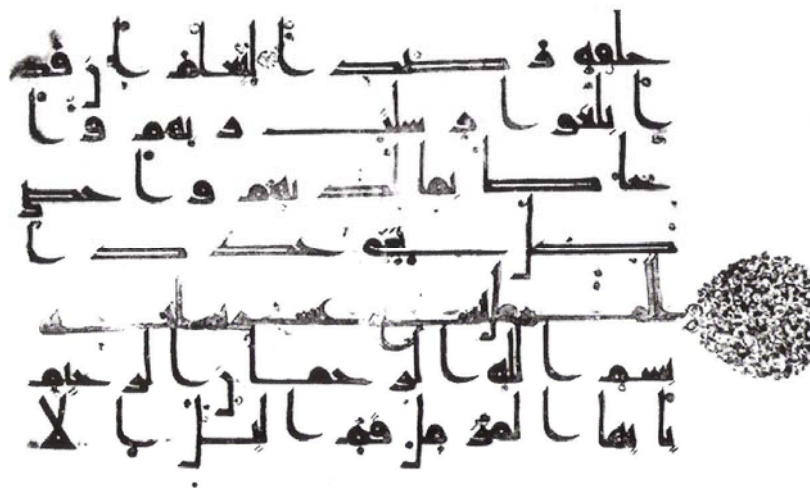 خلفه رصدا ليعلم ان قد
ابلغوا رسلت ربهم وا
حاط بما لديهم واحصى
كل شى عددا
بسم الله الرحمن الرحيم
يايها المزمل قم اليل الا